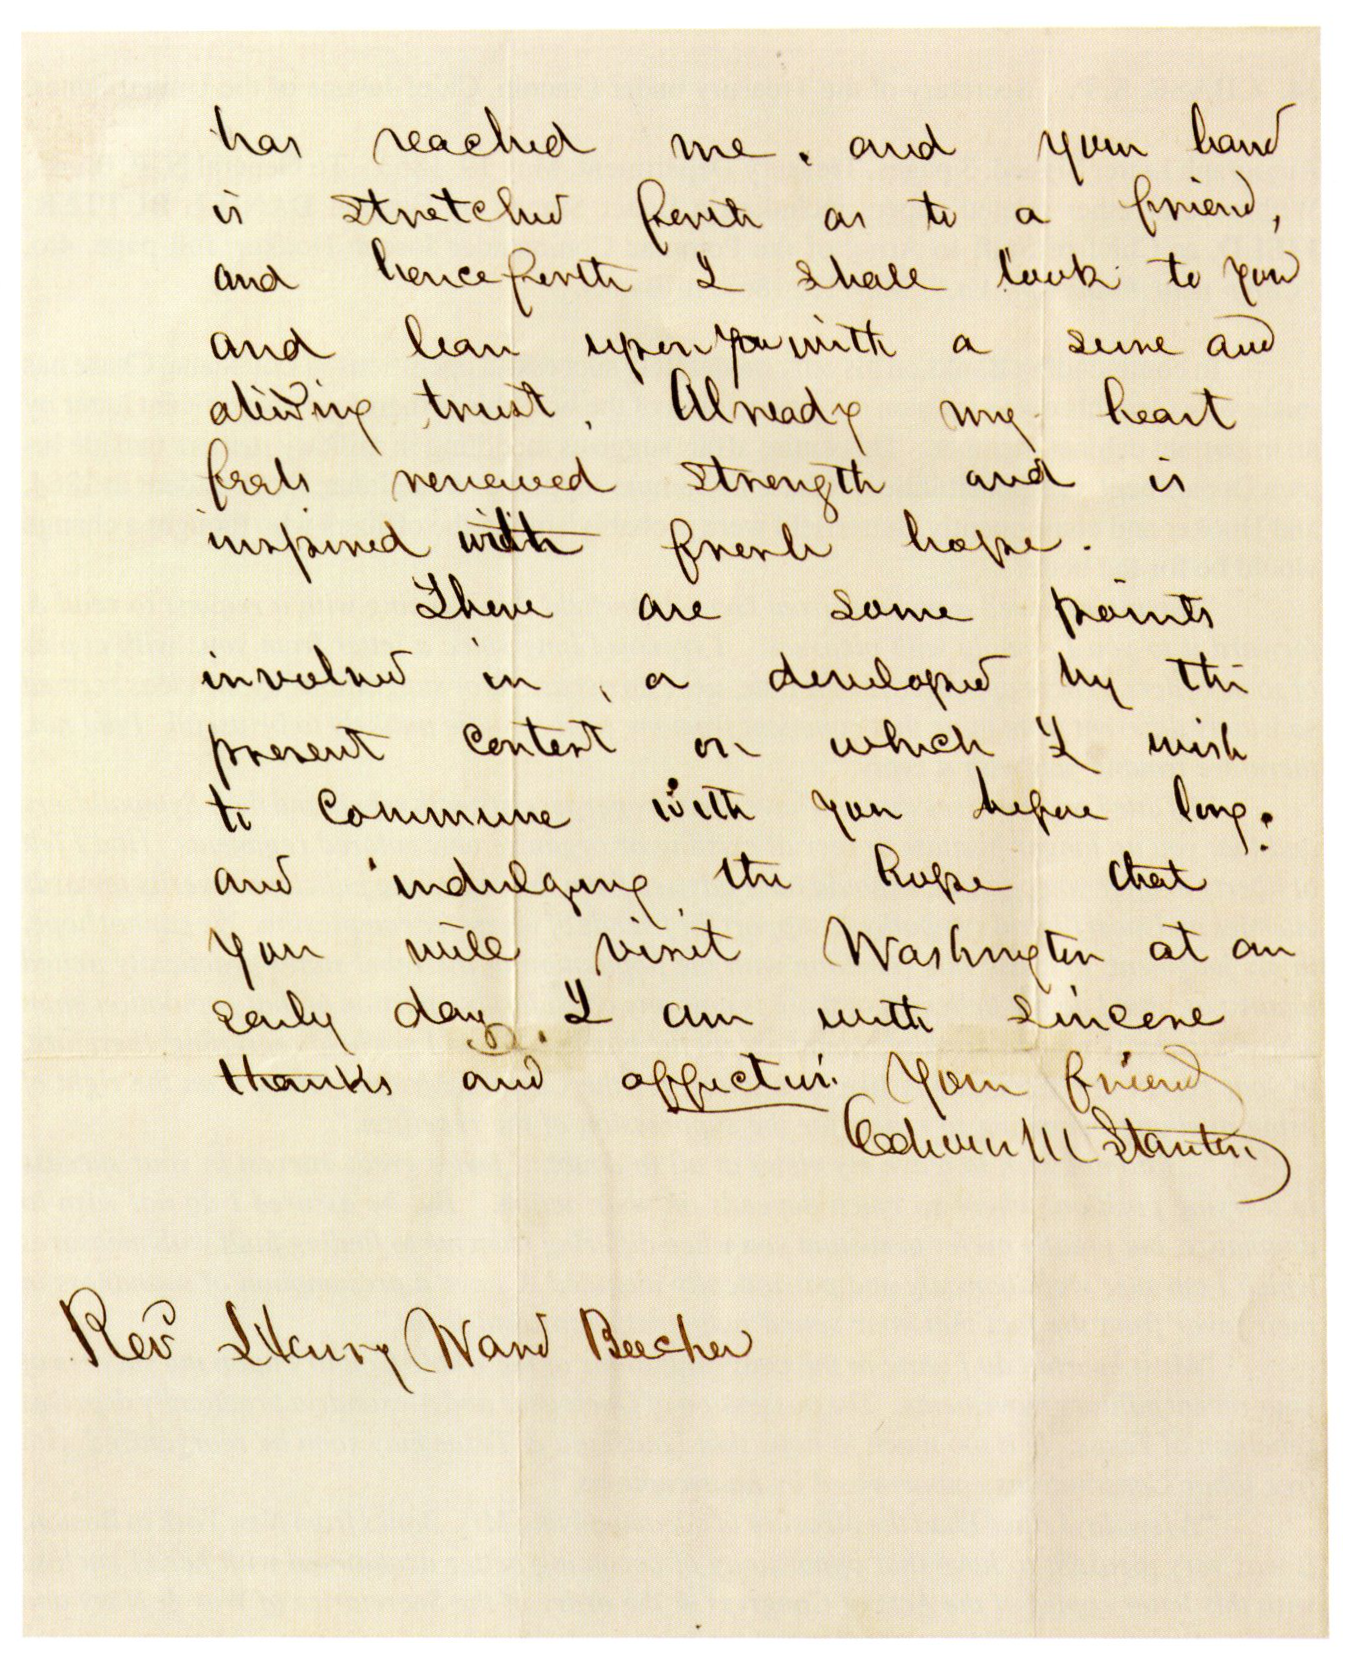 has reached me. and your hand
is stretched forth as to a friend,
and henceforth I shall look to you
and lean upon you with a sure and
abiding trust. Already my heart
feels renewed strength and is
inspired with fresh hope.
There are some points
involved in, or developed by the
present contest on which I wish
to commune with you before long:
and indulging the hope that
you will visit Washington at an
early day I am with sincere
thanks and affection Your friend
Edwin M Stanton
Rev Henry Ward Beecher